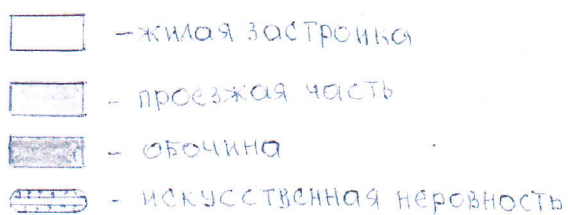 - жилая застройка
- проезжая часть
- обочина
- искусственная неровность